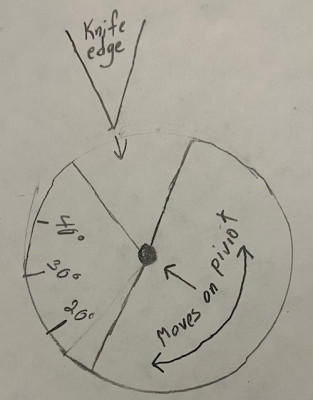 Knife
edge
40°
30°
20°
Moves on piviot